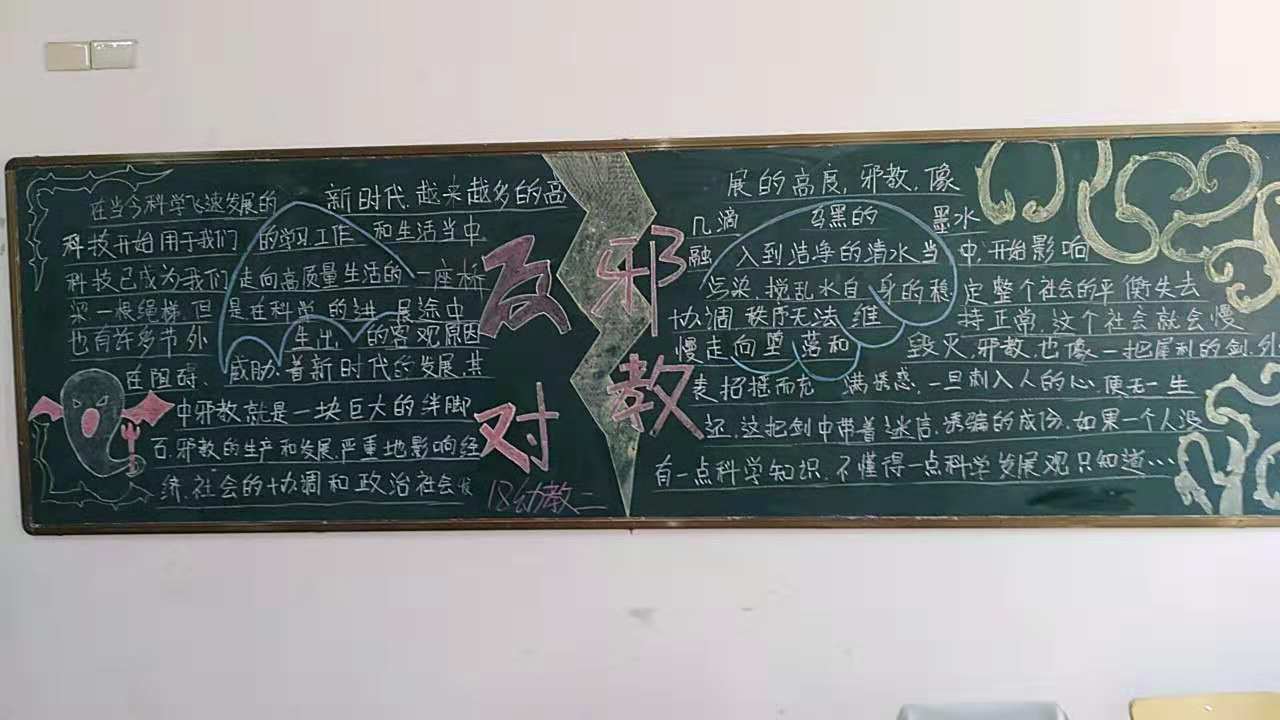 在当今科学飞速发展的 新时代,越来越多的高
科技开始用于我们 的学习工作 和生活当中
科技已成为我们走向高质量生活的一座桥
梁一根绳梯,但是在科学的进展途中
也有许多节外 生出, 的客观原因
在阻碍、威胁着新时代的发展,其
中邪教就是一块巨大的绊脚
石,邪教的生产和发展严重地影响经
济,社会的协调和政治社会发
18幼教二
反对
邪教
展的高度,邪教,像
几滴 乌黑的 墨水
融入到洁净的清水当中,开始影响
污染,搅乱水自身的稳定整个社会的平衡失去
协调,秩序无法维持正常,这个社会就会慢
慢走向堕落和 毁灭,邪教,也像一把犀利的剑,外
表招摇而充满诱惑,一旦刺入人的心便无一生
还,这把剑中带着迷信,诱骗的成份,如果一个人没
有一点科学知识,不懂得一点科学发展观只知道…